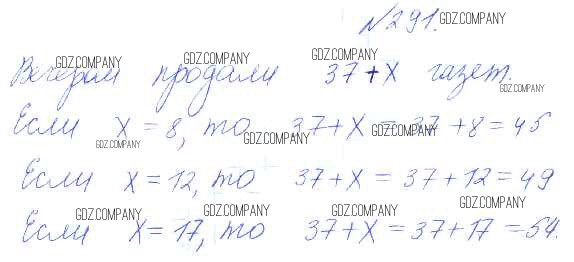 №291.
Вечером продали 37+x газет.
Если x = 8, то 37+x = 37 +8 = 45
Если x = 12, то 37+x = 37+12 = 49
Если x = 17, то 37+x = 37+17 = 54.
GDZ.COMPANY
GDZ.COMPANY
GDZ.COMPANY
GDZ.COMPANY
GDZ.COMPANY
GDZ.COMPANY
GDZ.COMPANY
GDZ.COMPANY
GDZ.COMPANY
GDZ.COMPANY
GDZ.COMPANY
GDZ.COMPANY
GDZ.COMPANY